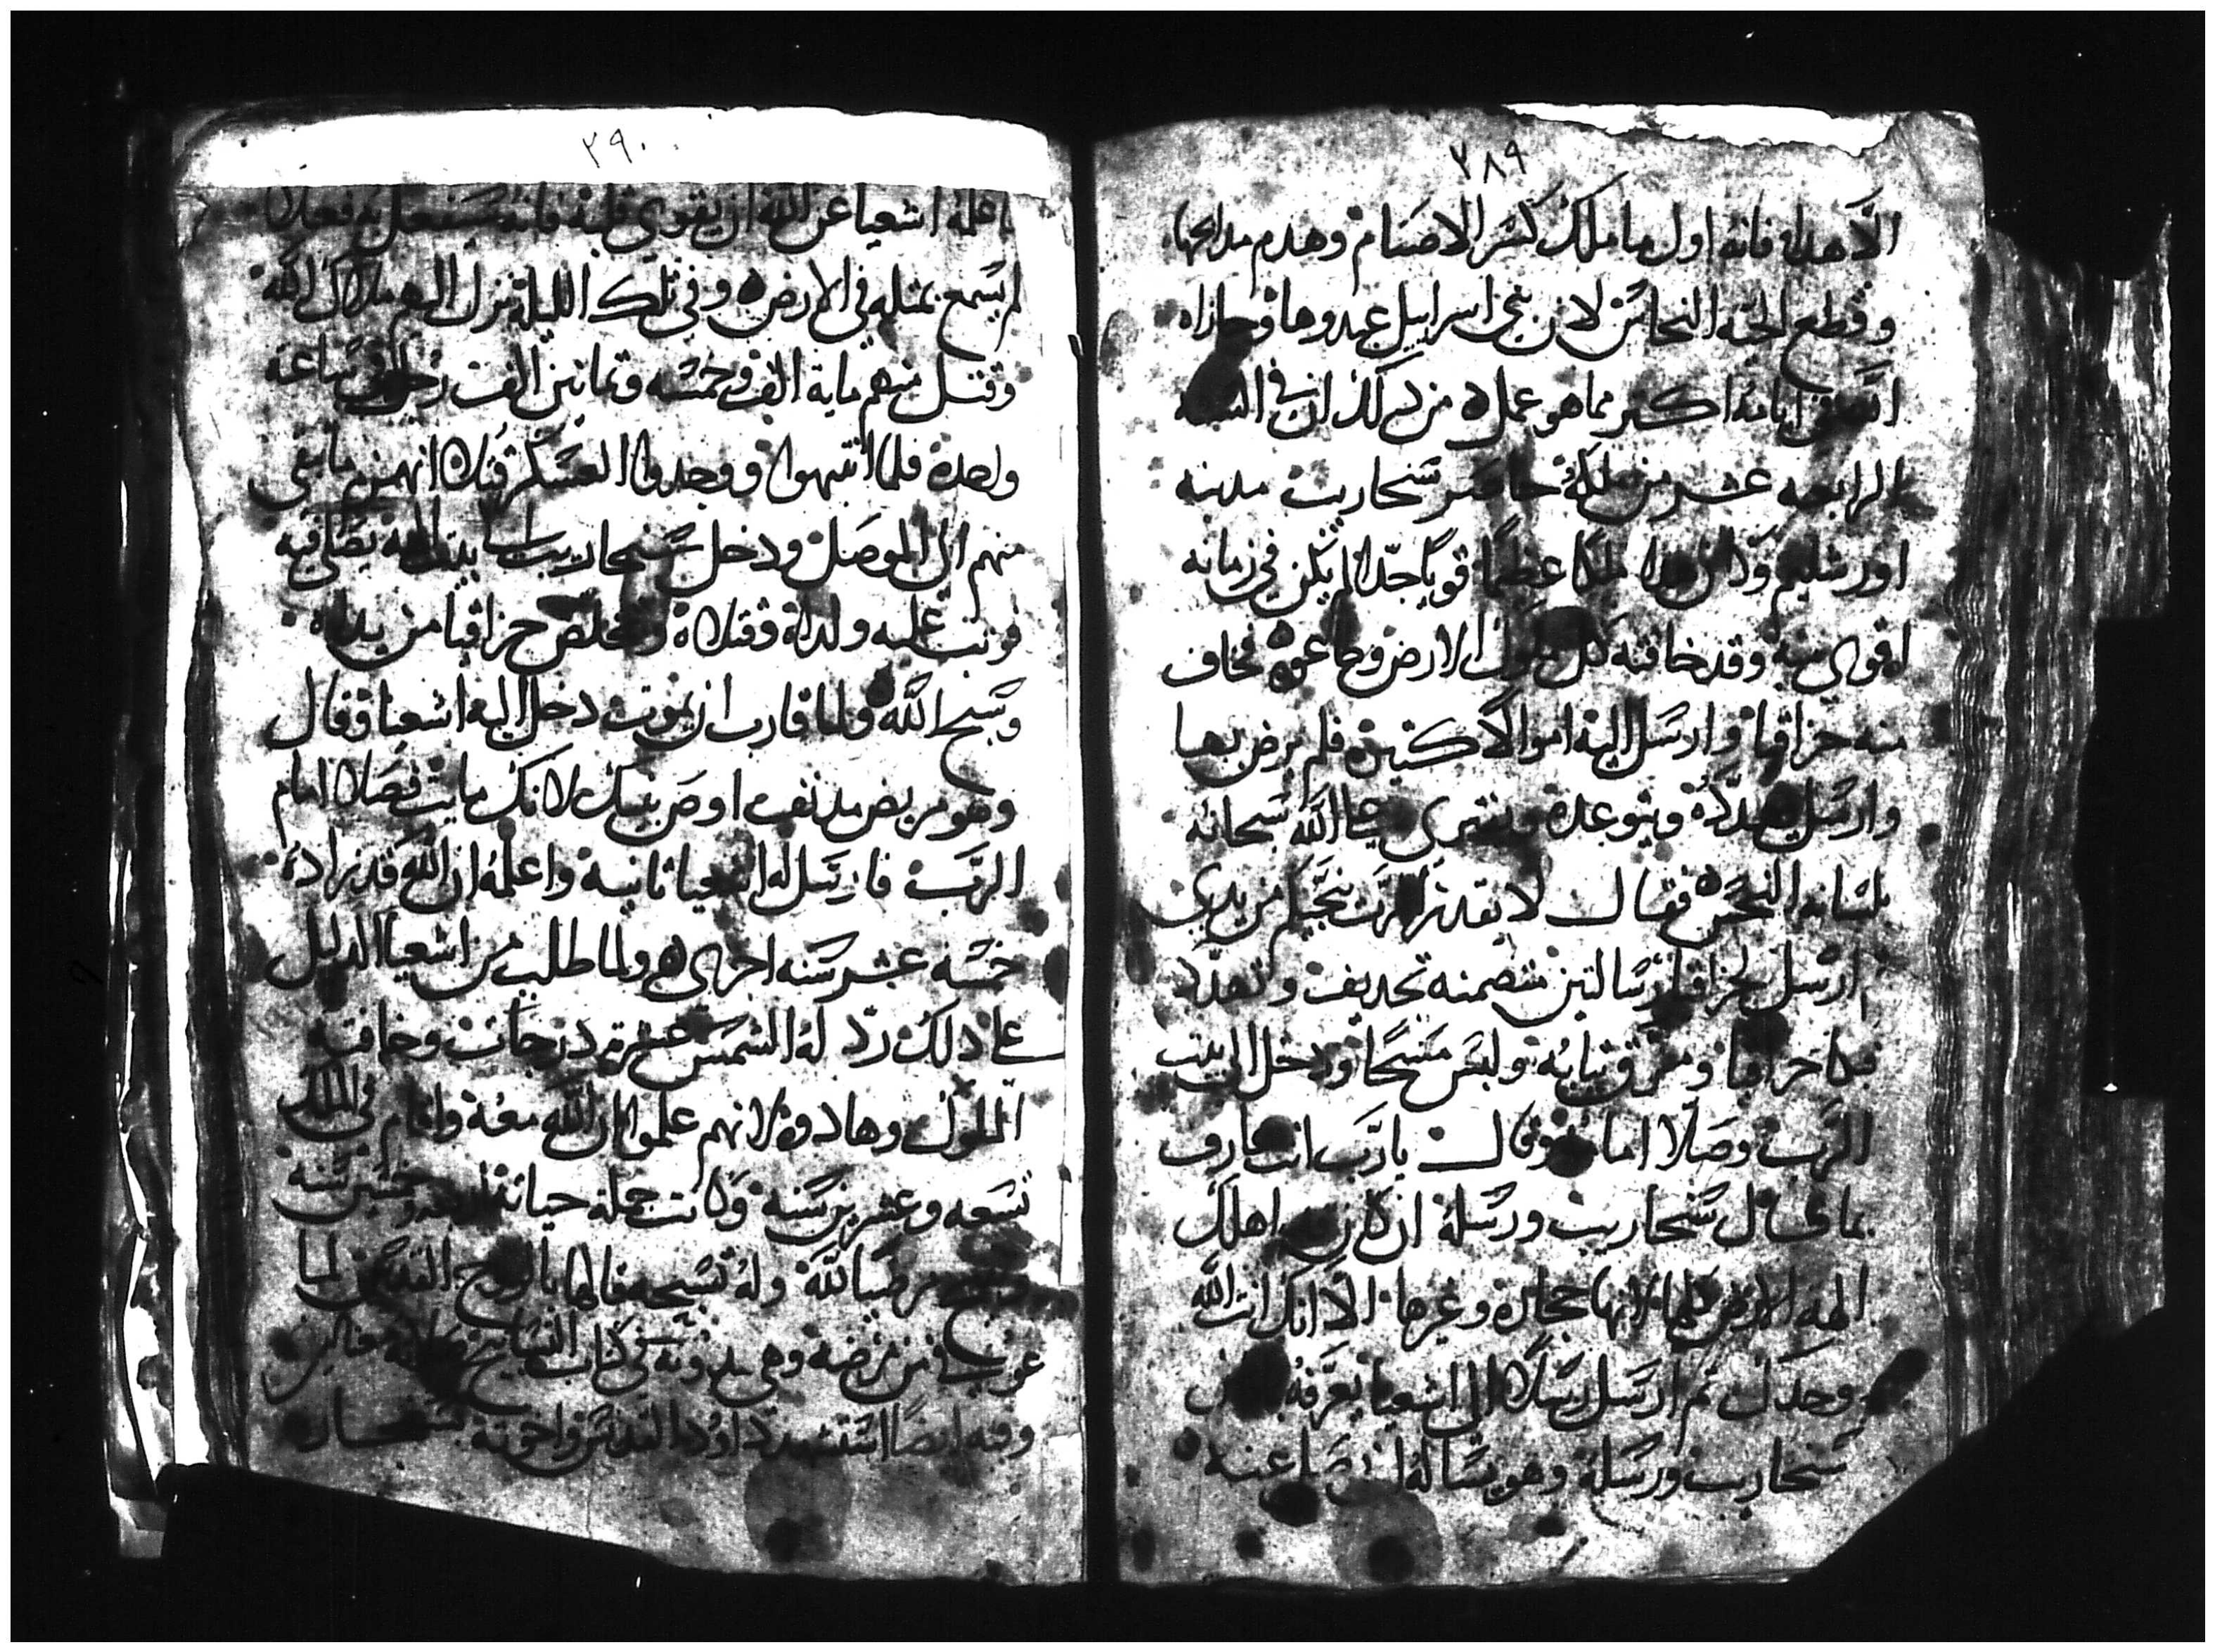 ٢٨٩
الا هداه فانه اول ما ملك كسر الاصنام وهدم مدابحها
وقطع الحيه النحاس لان بني اسراييل عبدوها وجازاه
في ايامه اكتر مما هو عمله من دلك ان في السنه
الرابعه عشر من ملكه حاصر سنحاريت مدينه
اورشليم وكان هدا ملكا عظيما قويا جدا لم يكن في زمانه
اقوى منه وقد خافته كل ملوك الارض وطاعوه فخاف
منه حزاقيا وارسل اليه اموالا كتيره فلم يرض بها
وارسل يهدده ويتوعده ويفتري على الله سبحانه
بلسانه النجس فقال لا يقدر الرب ينجيكم من يدي
ارسل لحزاقيا رسالتين متضمنه تجديف وتهدد
فبكا حزاقيا ومزق تيابه ولبس مسحا ودخل الى بيت
الرب وصلا امامه وقال يا رب انت عارف
بما قال سنحاريت ورسله ان كان اهلك
الهة الارض كلها لانها حجاره وغيرها الا انك انت الله
وحدك تم ارسل رسلا الى اشعيا يعرفه
سنحاريب ورسله وهو يساله ان يصلي عنه
٢٩٠
فاعلمه اشعيا عن الله ان يقوي قلبه فانه سيفعل به فعلا
لم يسمع بمتله في الارض وفي تلك الليله نزل اليهم ملاك الله
وقتل منهم ماية الف وخمسه وتمانين الف رجل في ساعة
واحده فلما انتبهوا ووجدوا العسكر قتلا انهزم ما بقي
منهم الى الموصل ودخل سنحاريب الى بيت الهه يصلي فيه
فوتب عليه ولداه وقتلاه وتخلص حزاقيا من يداه
وسبح الله ولما قارب ان يموت دخل اليه اشعيا وقال
وهو مريض مدنف اوص بنيك لانك مايت فصلا امام
الرب فارسل له اشعيا تانية واعلمه ان الله قد زاده
خمسه عشر سنه اخرى ولما طلب من اشعيا الدليل
على دلك رد له الشمس عشرة درجات وخافته
الملوك وهادوه لانهم علموا ان الله معه واقام في الملك
تسعه وعشرين سنه وكانت جملة حياته اربعه وخمسين سنه
وتنيح مرضيا لله وله تسبحه قالها بالروح القدس لما
عوفي من مرضه وهي مدونه في كتاب التسابيح
وفيه ايضا استشهد داود التدمري واخوته